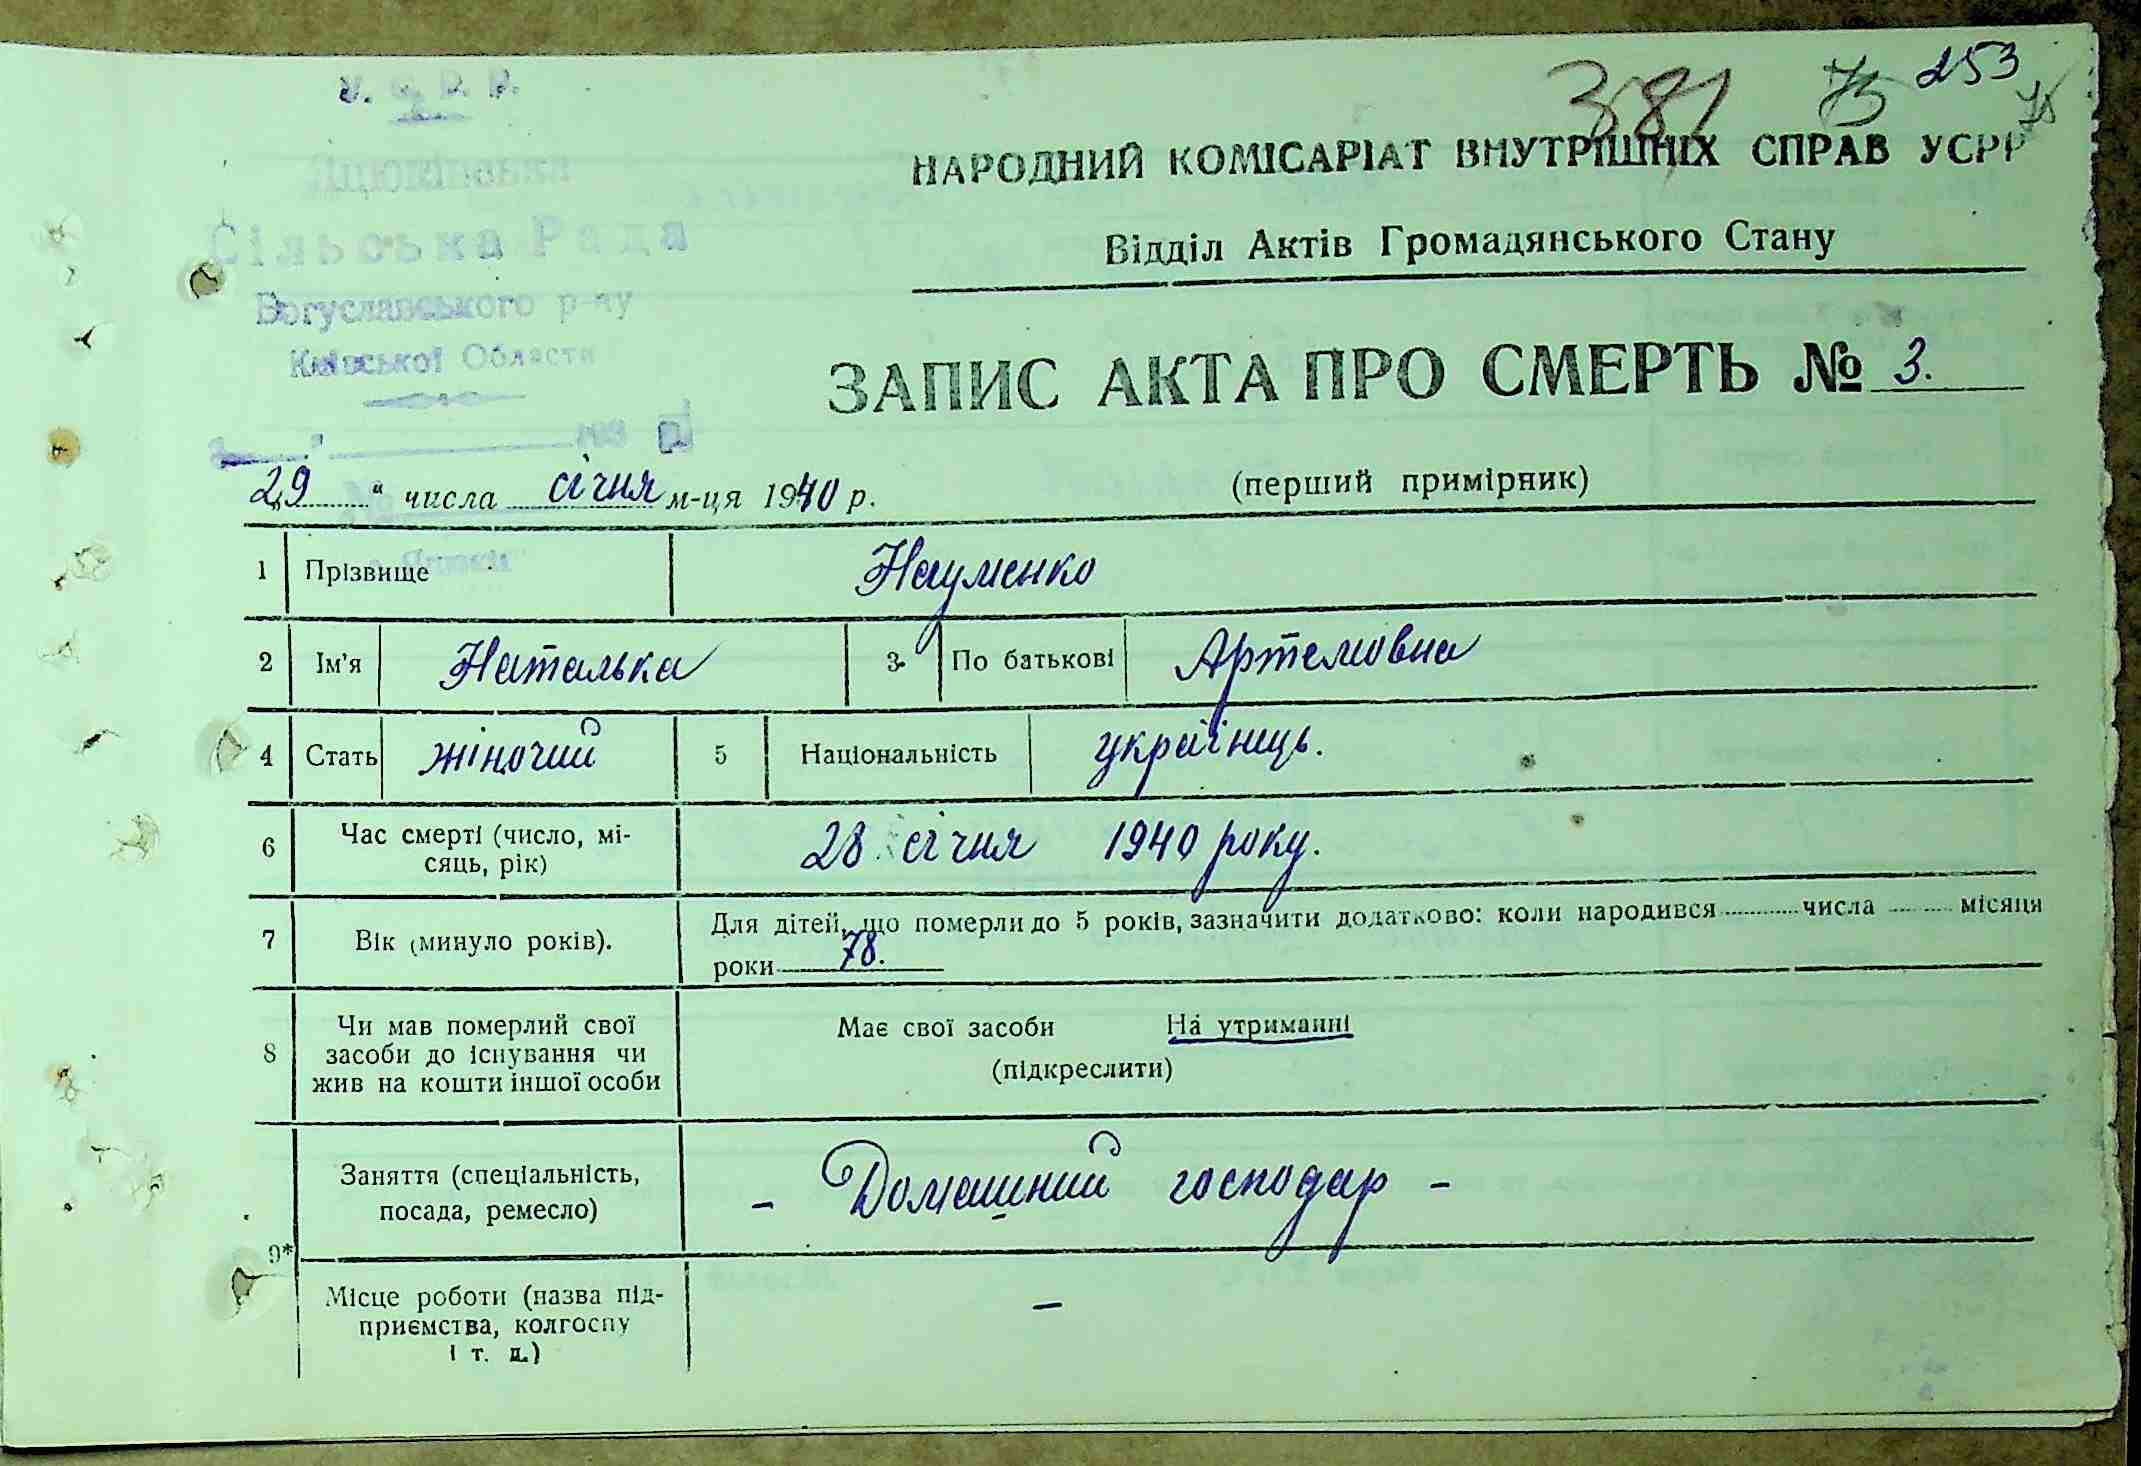 У. С. Р. Р.
381 75 253
75
Яцюківська
НАРОДНИЙ КОМІСАРІАТ ВНУТРІШНІХ СПРАВ УСРР
Сільська Рада
Відділ Актів Громадянського Стану
Богуславського р-ну
Київської Области
ЗАПИС АКТА ПРО СМЕРТЬ № 3.
193
„29 “ числа січня м-ця 1940 р.
(перший примірник)
1 Прізвище Науменко
2 Ім'я Наталька 3 По батькові Артемовна
4 Стать жіночий 5 Національність українець.
6 Час смерті (число, мі-
сяць, рік) 28 січня 1940 року.
7 Вік (минуло років). Для дітей, що померли до 5 років, зазначити додатково: коли народився числа місяця
роки 78.
8 Чи мав померлий свої
засоби до існування чи
жив на кошти іншої особи
Має свої засоби На утриманні
(підкреслити)
9* Заняття (спеціальність,
посада, ремесло) - Домашний господар -
Місце роботи (назва під-
приємства, колгоспу
і т. д.) -